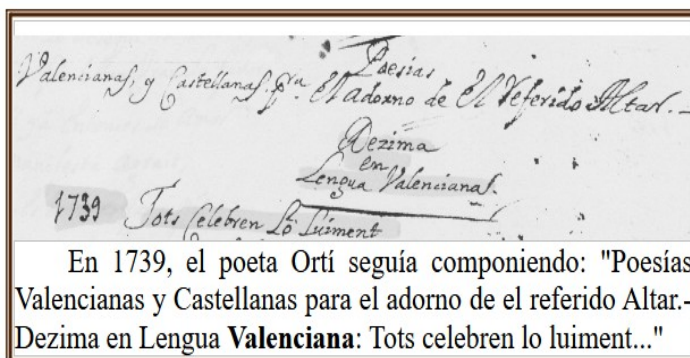 Poesias
Valencianas, y Castellanas. pra. El adorno de El referido Altar.-
Dezima
en
Lengua Valenciana.
1739 Tots Celebren Lo Luiment
En 1739, el poeta Ortí seguía componiendo: "Poesías
Valencianas y Castellanas para el adorno de el referido Altar.-
Dezima en Lengua Valenciana: Tots celebren lo luiment..."